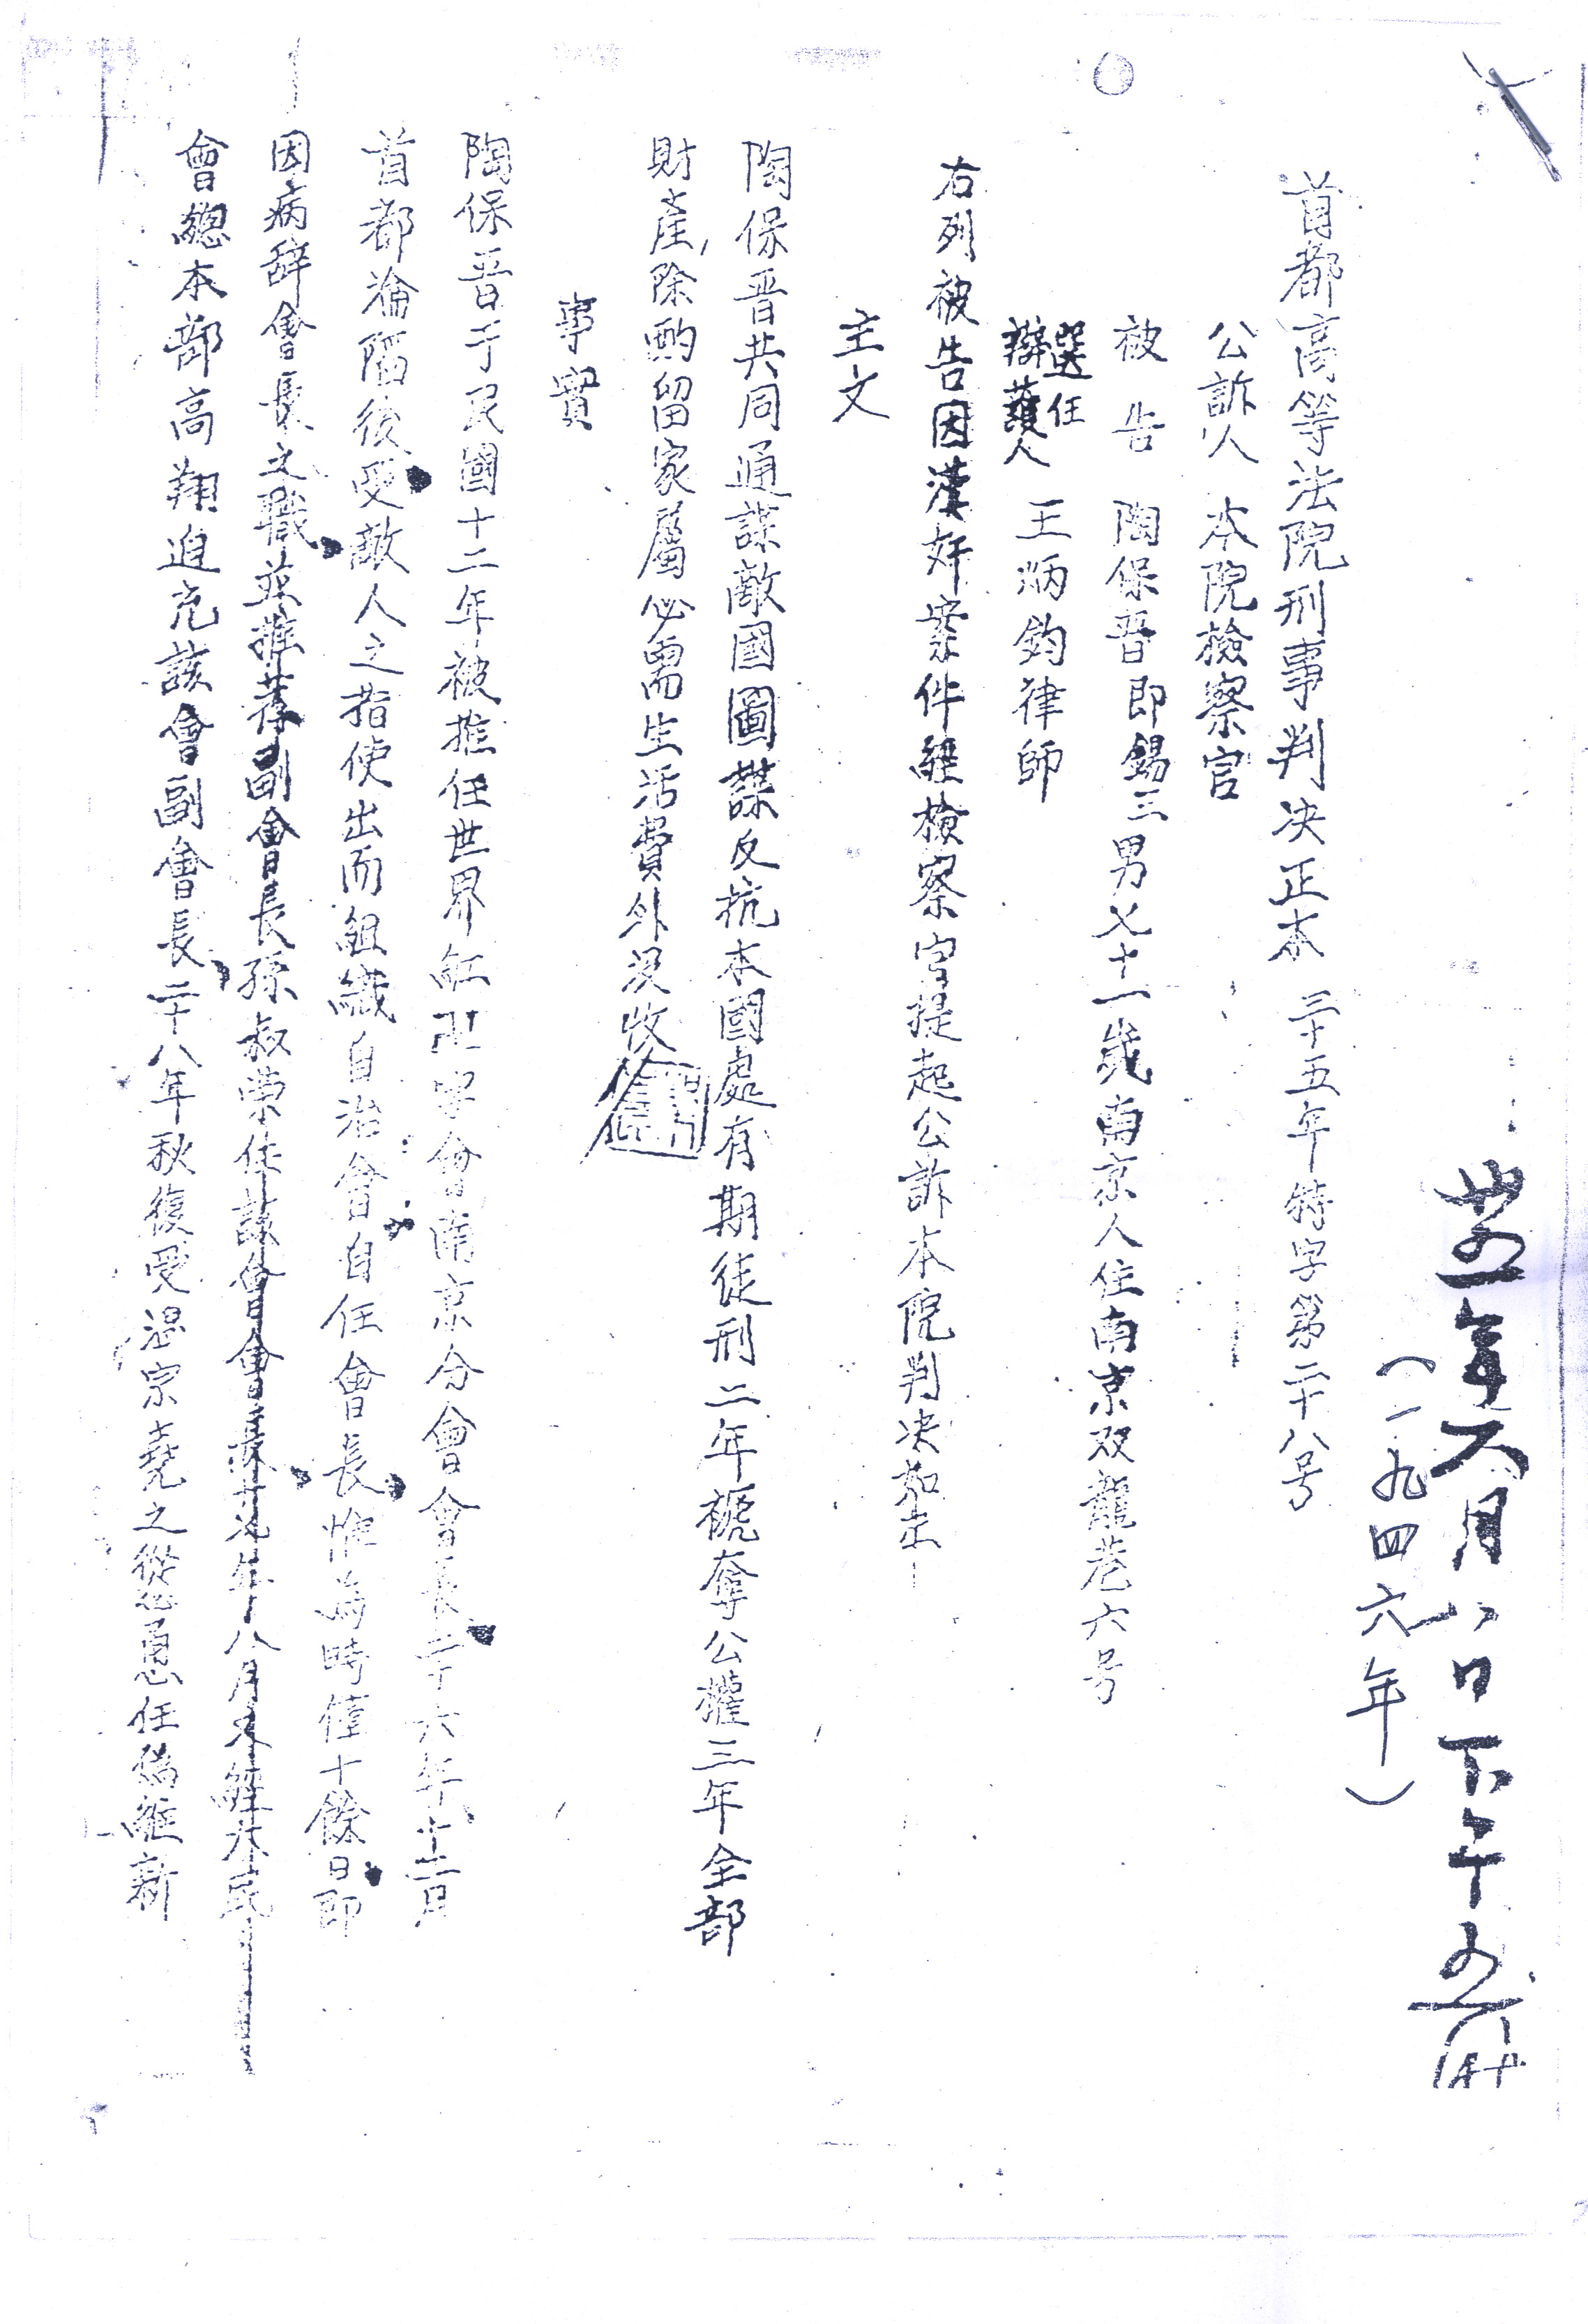 年六月八日下午
（一九四六年）
首都高等法院刑事判决正本 三十五年特字第二十八号
公訴人 本院檢察官
被告 陶保晋即錫三男七十一歲南京人住南京双龍巷六号
選任辯護人 王炳鈞律師
右列被告因漢奸案件經檢察官提起公訴本院判决如左
主文
陶保晋共同通謀敵國圖謀反抗本國處有期徒刑二年褫奪公權三年全部
財產除酌留家屬必需生活費外没收
事實
陶保晋于民國十二年被推任世界紅卍字會南京分會會長二十六年十二月
首都淪陷後受敵人之指使出而組織自治會自任會長惟為時僅十餘日即
因病辞會長之職並推荐副會長孫叔榮任該會會長十九年八月又經本民
會總本部高翔迫充該會副會長二十八年秋復受温宗堯之慫恿任偽維新